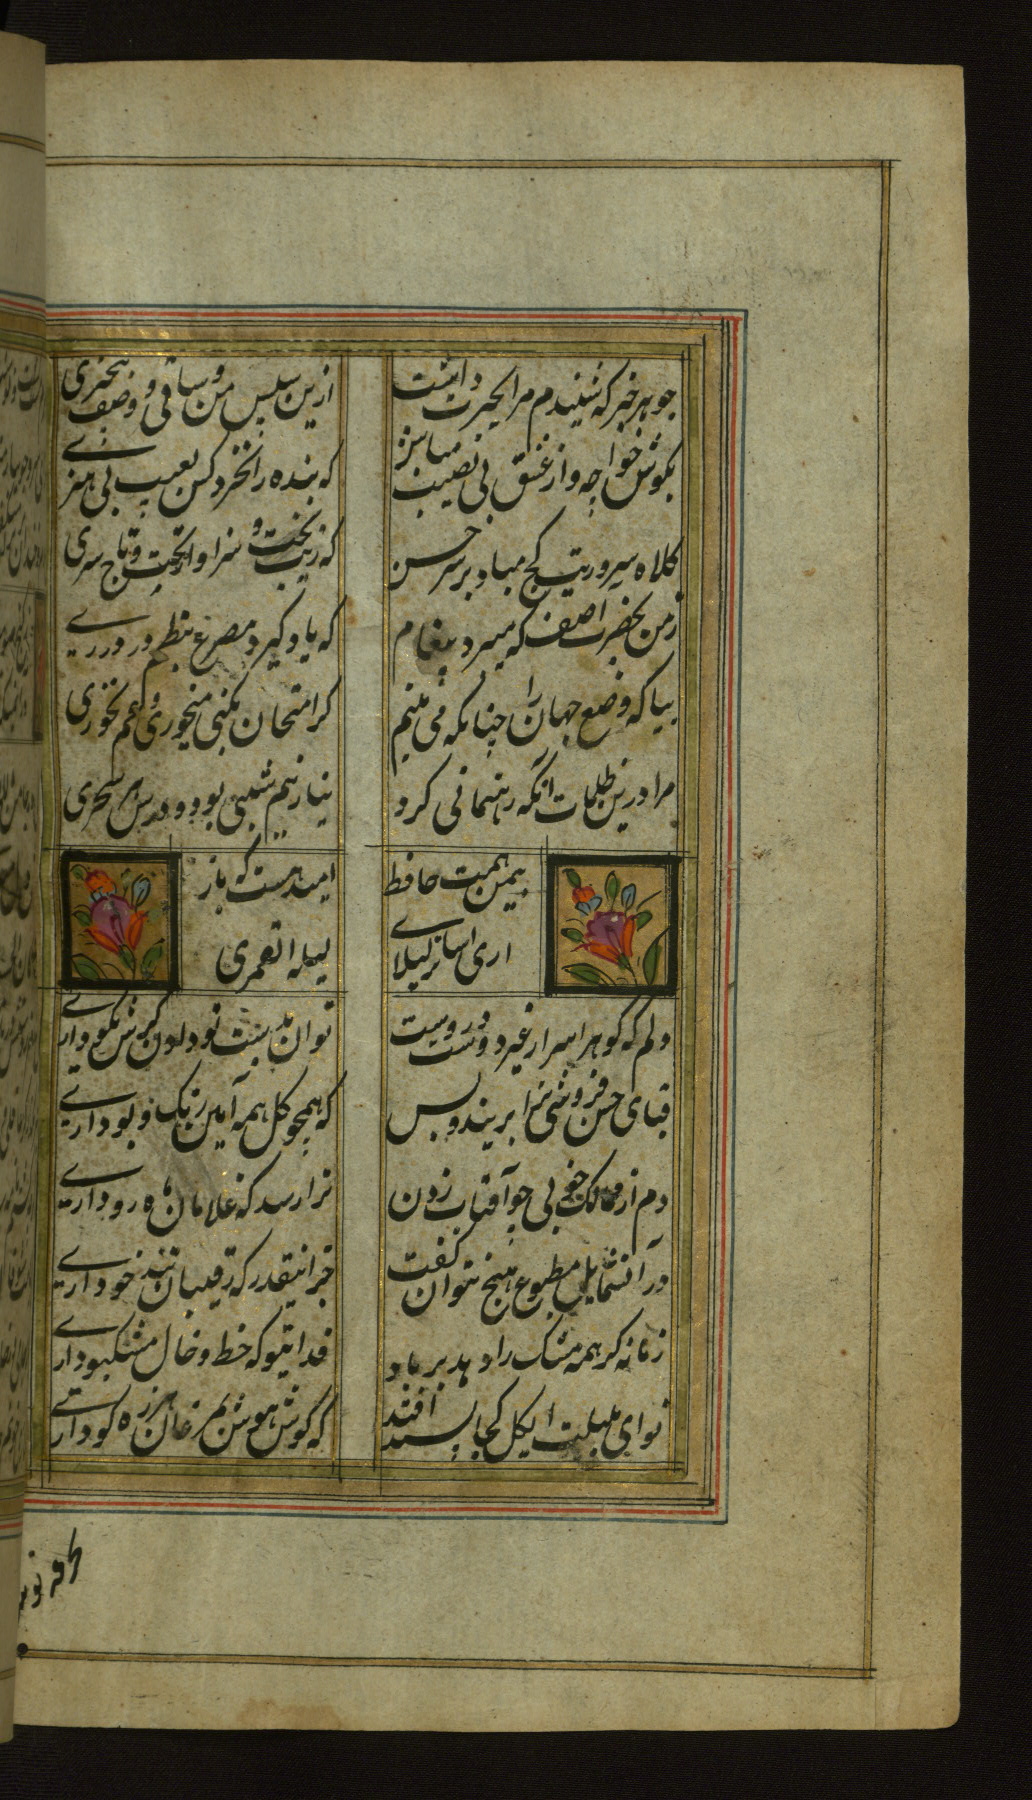 چو هر خبر که شنیدم مرا بحیرت داشت
ازین سپس من و ساقی و وضع بیخبری
بکوش خواجه و از عشق بی نصیب مباش
که بنده را نخرد کس بعیب بی هنری
کلاه سروریت کج مباد بر سر حسن
که زیب بخت و سزاوار تخت و تاج سری
ز من بحضرت اصف که میبرد پیغام
که یاد گیرد مصرع بنظم در دری
بیا که وضع جهان را چنانکه می بینم
گر امتحان بکنی میخوری و غم نخوری
مرا درین ظلمات انکه رهنمائی کرد
نیاز نیم شبی بود و درس سحری
بیمن همت حافظ
امید هست که باز
اری اسامر لیلای
لیله القمری
دلم که گوهر اسرار غیر و دوست دروست
توان بدست تو دادن گرش نکو داری
قبای حسن فروشی ترا برید و بس
که همچو گل همه آیین رنگ و بو داری
دم از ممالک خوبی چو آفتاب زدن
ترا رسد که غلامان ماه رو داری
در آن شمایل مطبوع هیچ نتوان گفت
جز اینقدر که رقیبان تند خو داری
زمانه گر همه مشک را دهد بر باد
فدای تو که خط و خال مشکبو داری
نوای بلبلت ایگل کجا پسند افتد
که گوش هوش بمرغان هرزه گو داری